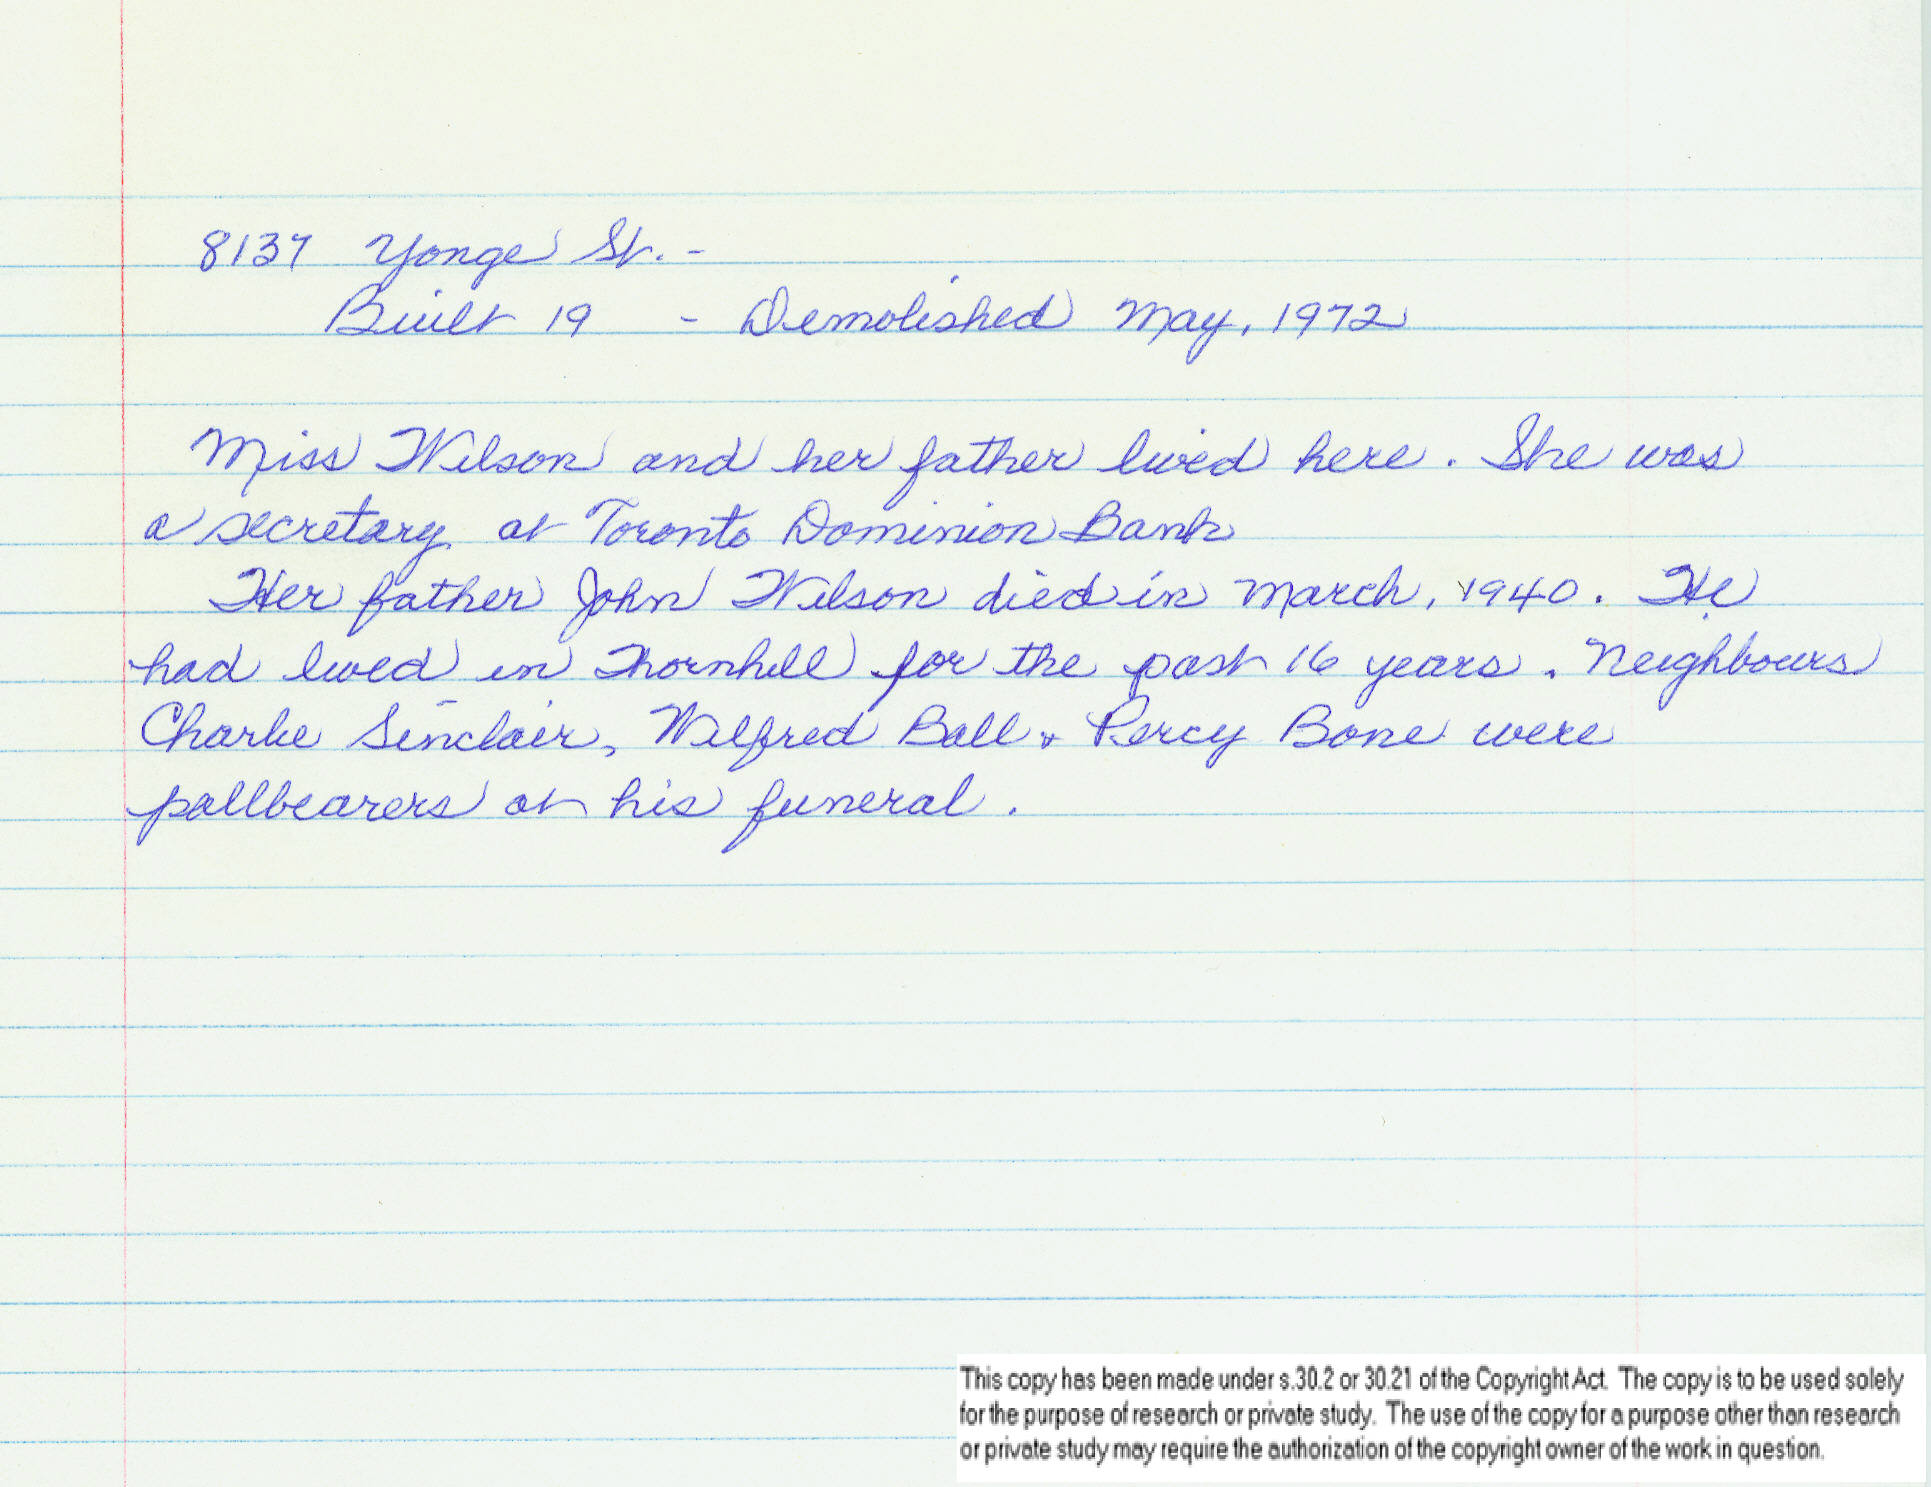 8137 Yonge St. -
Built 19 - Demolished May, 1972
Miss Wilson and her father lived here. She was
a secretary at Toronto Dominion Bank
Her father John Wilson died in March, 1940. He
had lived in Thornhill for the past 16 years. Neighbours
Charlie Sinclair, Wilfred Ball & Percy Bone were
pallbearers at his funeral.
This copy has been made under s.30.2 or 30.21 of the Copyright Act. The copy is to be used solely
for the purpose of research or private study. The use of the copy for a purpose other than research
or private study may require the authorization of the copyright owner of the work in question.